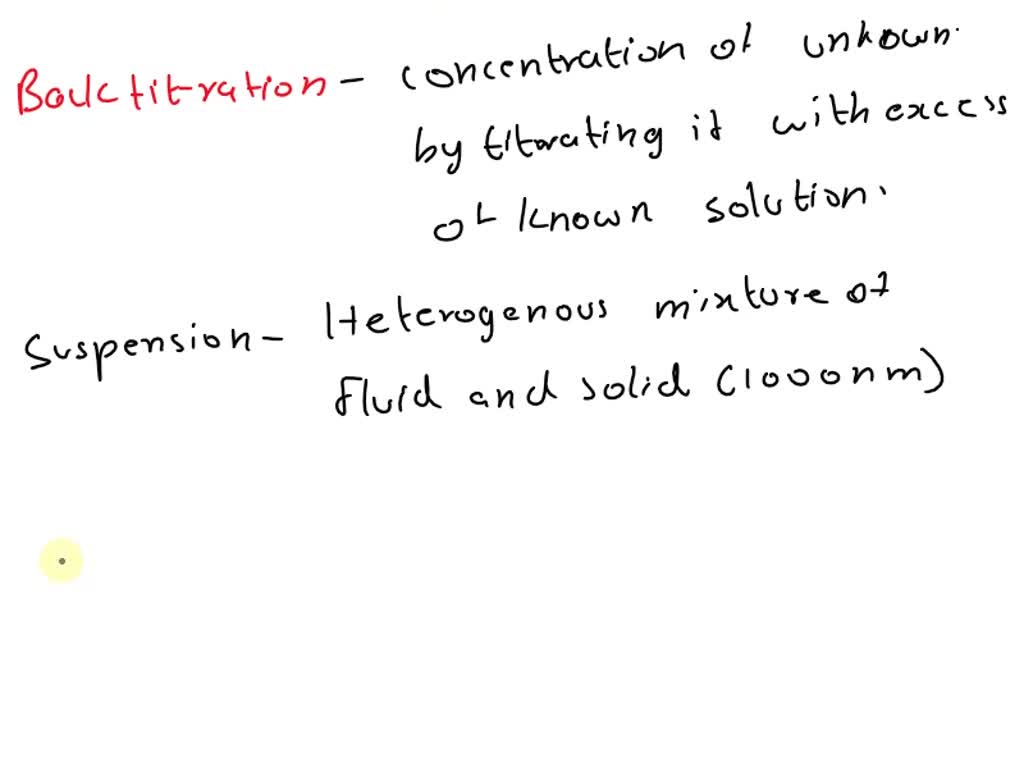 Back titration - concentration of unkown.
by titrating it with excess
of known solution.
Suspension - Heterogenous mixture of
fluid and solid (1000nm)